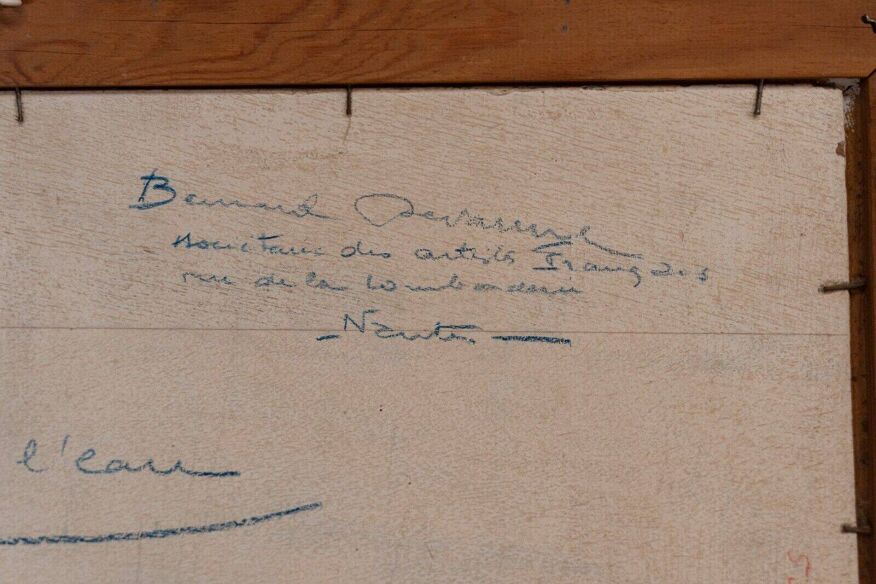 Bernard
sociétaire des artistes Français
rue de la
- Nantes -
l'eau